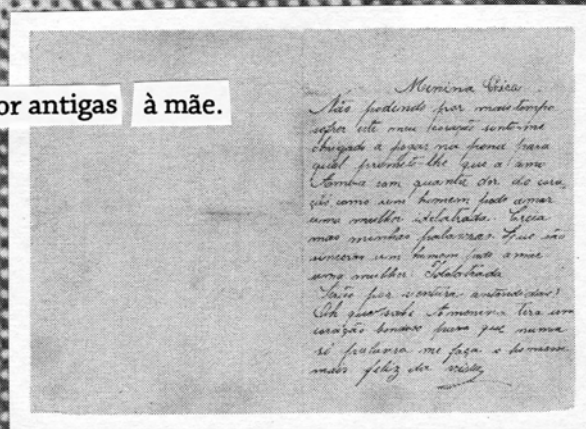 or antigas à mãe.
Menina
Não podendo por mais tempo
sofrer este meu coração sinto-me
obrigado a pegar na pena para
qual prometo-lhe que a amo
com quanta dor do cora-
ção, como um homem pode amar
uma mulher idolatrada. Creia
nas minhas palavras. Que são
sinceras um homem pode amar
uma mulher. Idolatrada
por ventura
Oh quem sabe A menina tera um
coração bondoso para que numa
só palavra me faça o homem
mais feliz da vida